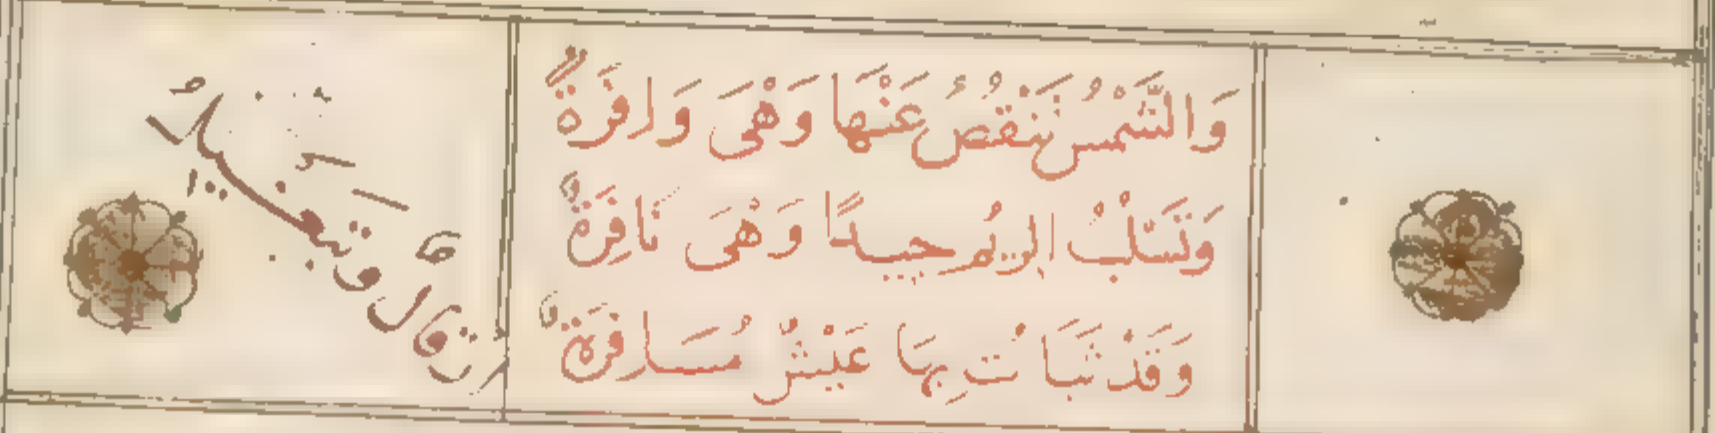 وَالشَّمْسُ تَنْقُصُ عَنْهَا وَهْىَ وَافِرَةٌ
وَتَسْلُبُ الرِيمُ جِيدًا وَهْىَ نَافِرَةٌ
وَقَدْ تَبَا بِهَا عَيْشٌ مُسَافِرَةٌ
قال